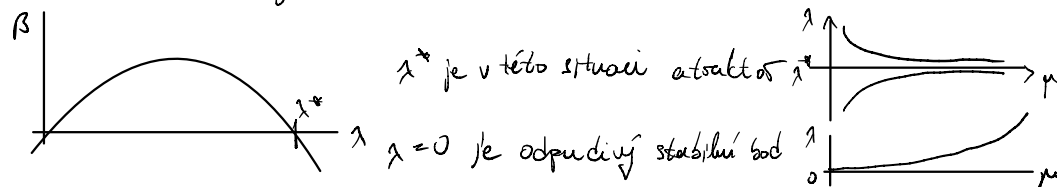 β
λ*
λ
λ* je v této situaci atraktor
λ
λ*
μ
λ=0 je odpudivý stabilní bod
λ
0
μ